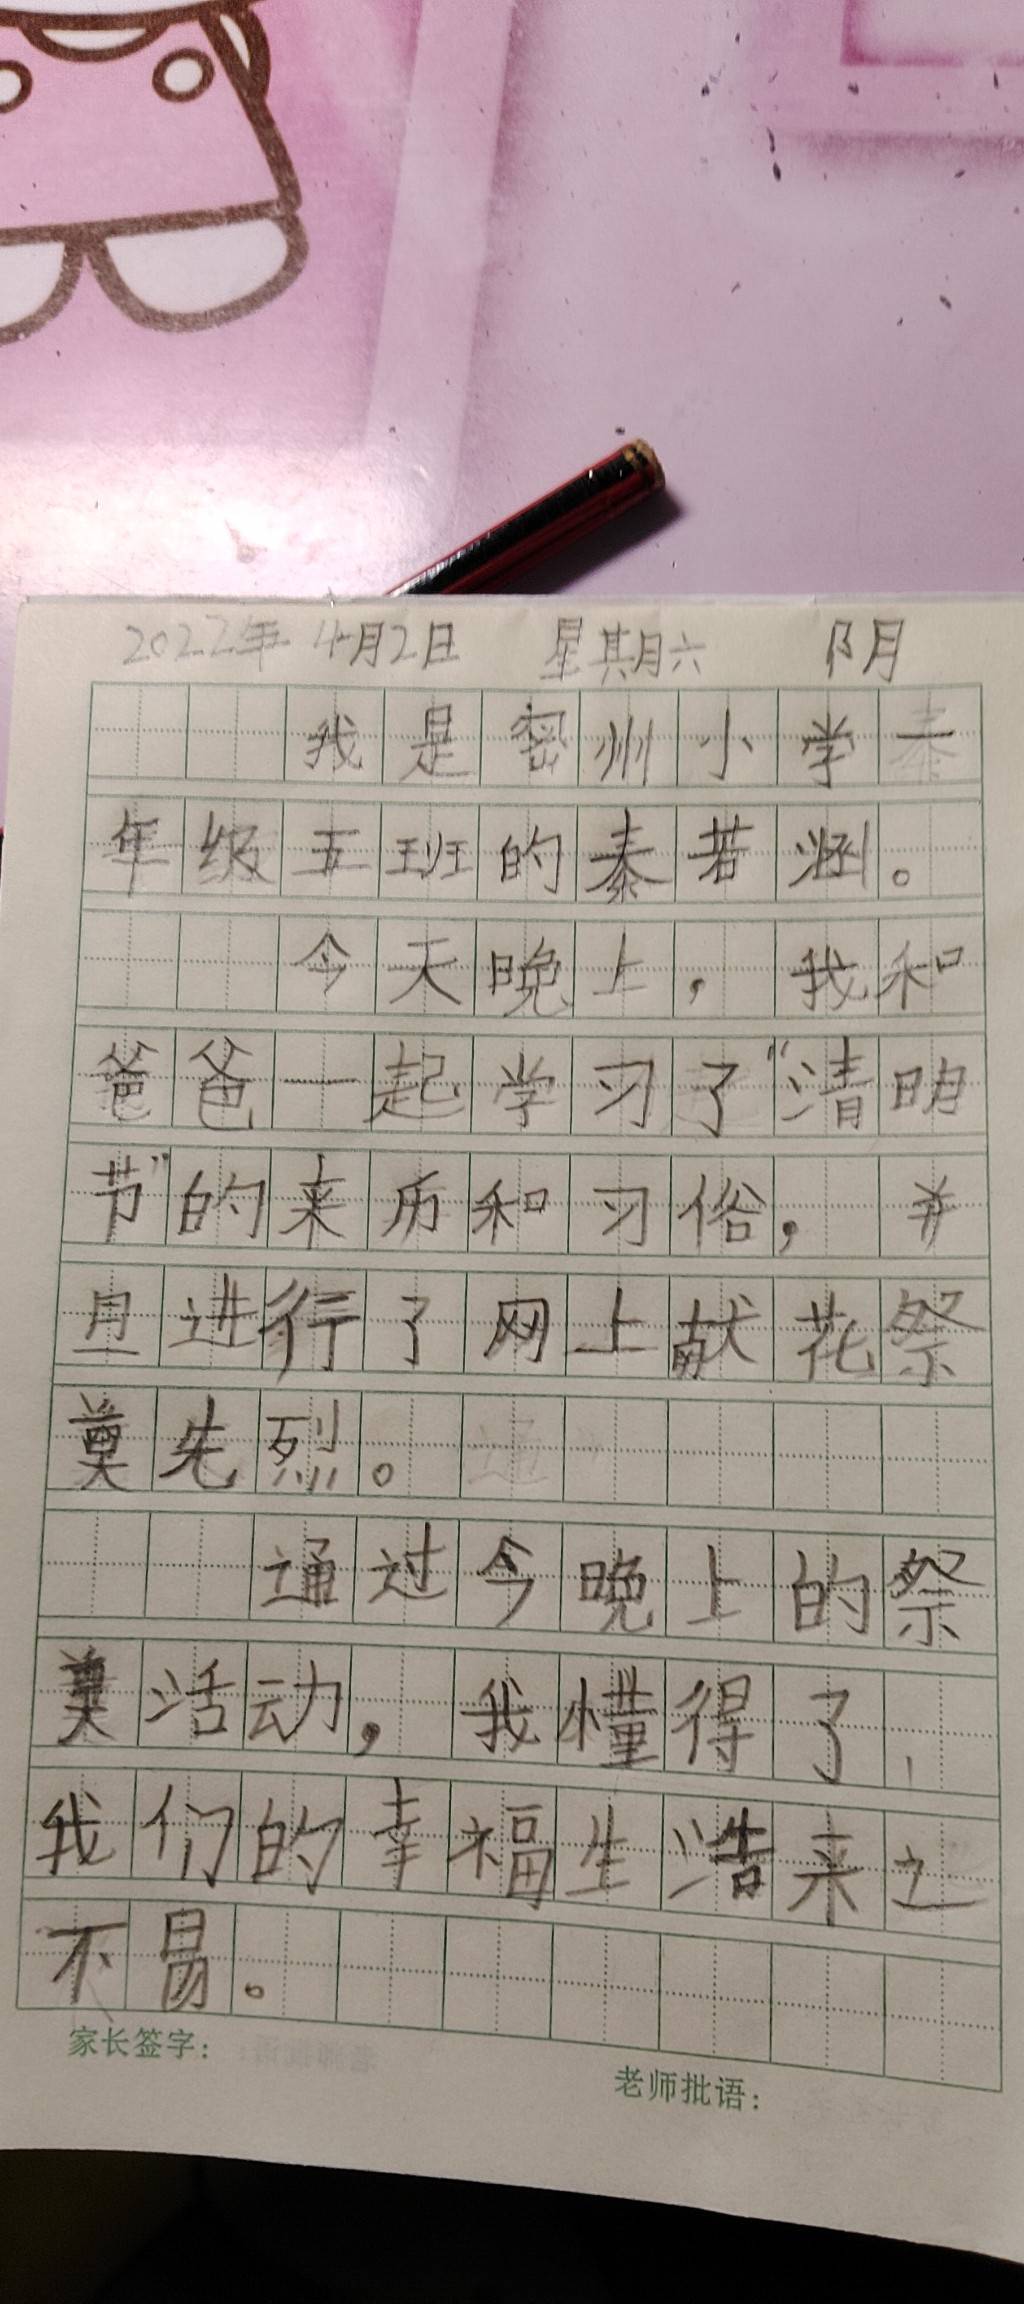 2022年4月2日 星期六 阴
我是密州小学一
年级五班的秦若涵。
今天晚上，我和
爸爸一起学习了“清明
节”的来历和习俗，并
且进行了网上献花祭
奠先烈。
通过今晚上的祭
奠活动，我懂得了，
我们的幸福生活来之
不易。
家长签字：
老师批语：